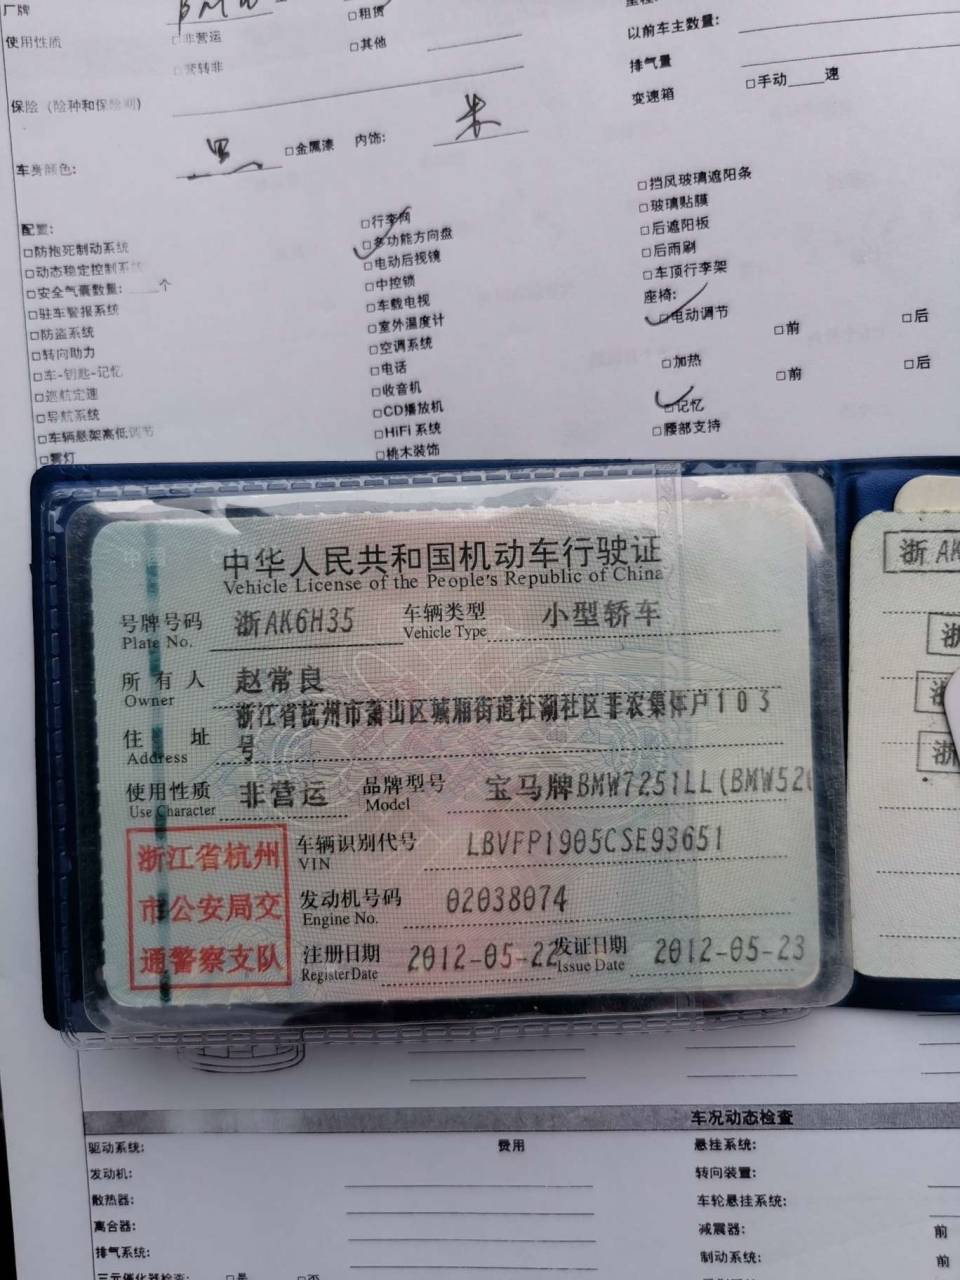 厂牌 BMW
□租赁
使用性质 □非营运 □其他
□营转非
以前车主数量:
排气量
变速箱 □手动____速
保险（险种和保险期）
车身颜色: 黑 □金属漆 内饰: 米
配置:
□防抱死制动系统
□动态稳定控制系统
□安全气囊数量: ____个
□驻车警报系统
□防盗系统
□转向助力
□车-钥匙-记忆
□巡航定速
□导航系统
□车辆悬架高低调节
□雾灯
□行李网
□多功能方向盘
□电动后视镜
□中控锁
□车载电视
□室外温度计
□空调系统
□电话
□收音机
□CD播放机
□HiFi 系统
□桃木装饰
□挡风玻璃遮阳条
□玻璃贴膜
□后遮阳板
□后雨刷
□车顶行李架
座椅:
□电动调节 □前 □后
□加热 □前 □后
□记忆
□腰部支持
中华人民共和国机动车行驶证
Vehicle License of the People's Republic of China
号牌号码 浙AK6H35 车辆类型 小型轿车
Plate No. Vehicle Type
所有人 赵常良
Owner
浙江省杭州市萧山区城厢街道杜湖社区非农集体户103
住址 号
Address
使用性质 非营运 品牌型号 宝马牌BMW7251LL(BMW520
Use Character Model
浙江省杭州
市公安局交
通警察支队
车辆识别代号 LBVFP1905CSE93651
VIN
发动机号码 02038074
Engine No.
注册日期 2012-05-22 发证日期 2012-05-23
Register Date Issue Date
浙AK
浙
浙
浙
车况动态检查
驱动系统: 费用 悬挂系统:
发动机: 转向装置:
散热器: 车轮悬挂系统:
离合器: 减震器: 前
排气系统: 制动系统: 前
三元催化器检查: □是 □否